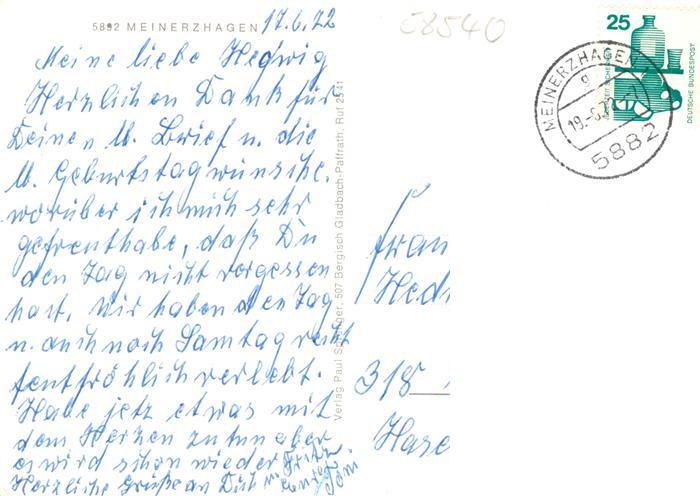 5882 MEINERZHAGEN
17.6.72
Meine liebe Hedwig
Herzlichen Dank für
Deinen lb. Brief u. die
lb. Geburtstagwünsche.
worüber ich mich sehr
gefreut habe, daß Du
den Tag nicht vergessen
hast. Wir haben den Tag
u. auch noch Samtag recht
fentfröhlich verlebt.
Habe jetz etwas mit
dem Herzen zu tun aber
es wird schon wieder
Herzliche Grüße an Dich u. Fritz
Verlag Paul 507 Bergisch Gladbach-Paffrath, Ruf 2541
E8540
25
DEUTSCHE BUNDESPOST
MEINERZHAGEN
5882
Frau
Hed
318
Hase